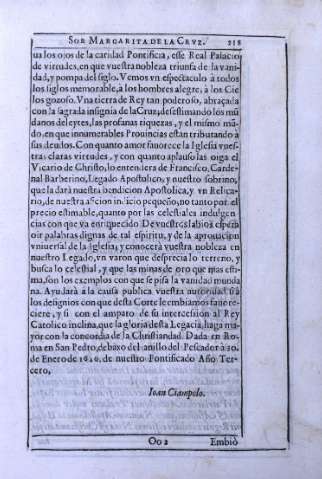 SOR MARGARITA DE LA CRVZ. 218
ua los ojos de la caridad Pontificia, esse Real Palacio
de virtudes, en que vuestra nobleza triunfa de la vani-
dad, y pompa del siglo. Vemos vn espectaculo à todos
los siglos memorable, à los hombres alegre, à los Cie
los gozoso. Vna tierna de Rey tan poderoso, abraçada
con la sagrada insignia de la Cruz, desestimando los mũ
danos deleytes, las profanas riquezas, y el mismo mũ-
do, en que innumerables Prouincias estan tributando à
sus deudos. Con quanto amor fauorece la Iglesia vues-
tras claras virtudes, y con quanto aplauso las oiga el
Vicario de Christo, lo entendera de Francisco, Carde-
nal Barberino, Legado Apostolico, y nuestro sobrino,
que la darà nuestra bendicion Apostolica, y vn Relica-
rio, de nuestra aficion indicio pequeño, no tanto por el
precio estimable, quanto por las celestiales indulgen-
cias con que va enriquecido De vuestros labios espera
oir palabras dignas de tal espiritu, y de la aprouacion
vniuersal de la Iglesia, y conocerà vuestra nobleza en
nuestro Legado, vn varon que desprecia lo terreno, y
busca lo celestial, y que las minas de oro que mas esti-
ma, son los exemplos con que se pisa la vanidad munda
na. Ayudarà à la causa publica vuestra autoridad si à
los designios con que desta Corte le embiamos fauore-
ciere, y si con el amparo de su intercession al Rey
Catolico inclina, que la gloria desta Legacia, haga ma-
yor con la concordia de la Christiandad. Dada en Ro-
ma en San Pedro, debaxo del anillo del Pescador à 30.
de Enero de 1626. de nuestro Pontificado Año Ter-
cero,
Ioan Ciampolo.
Oo 2 Embiò